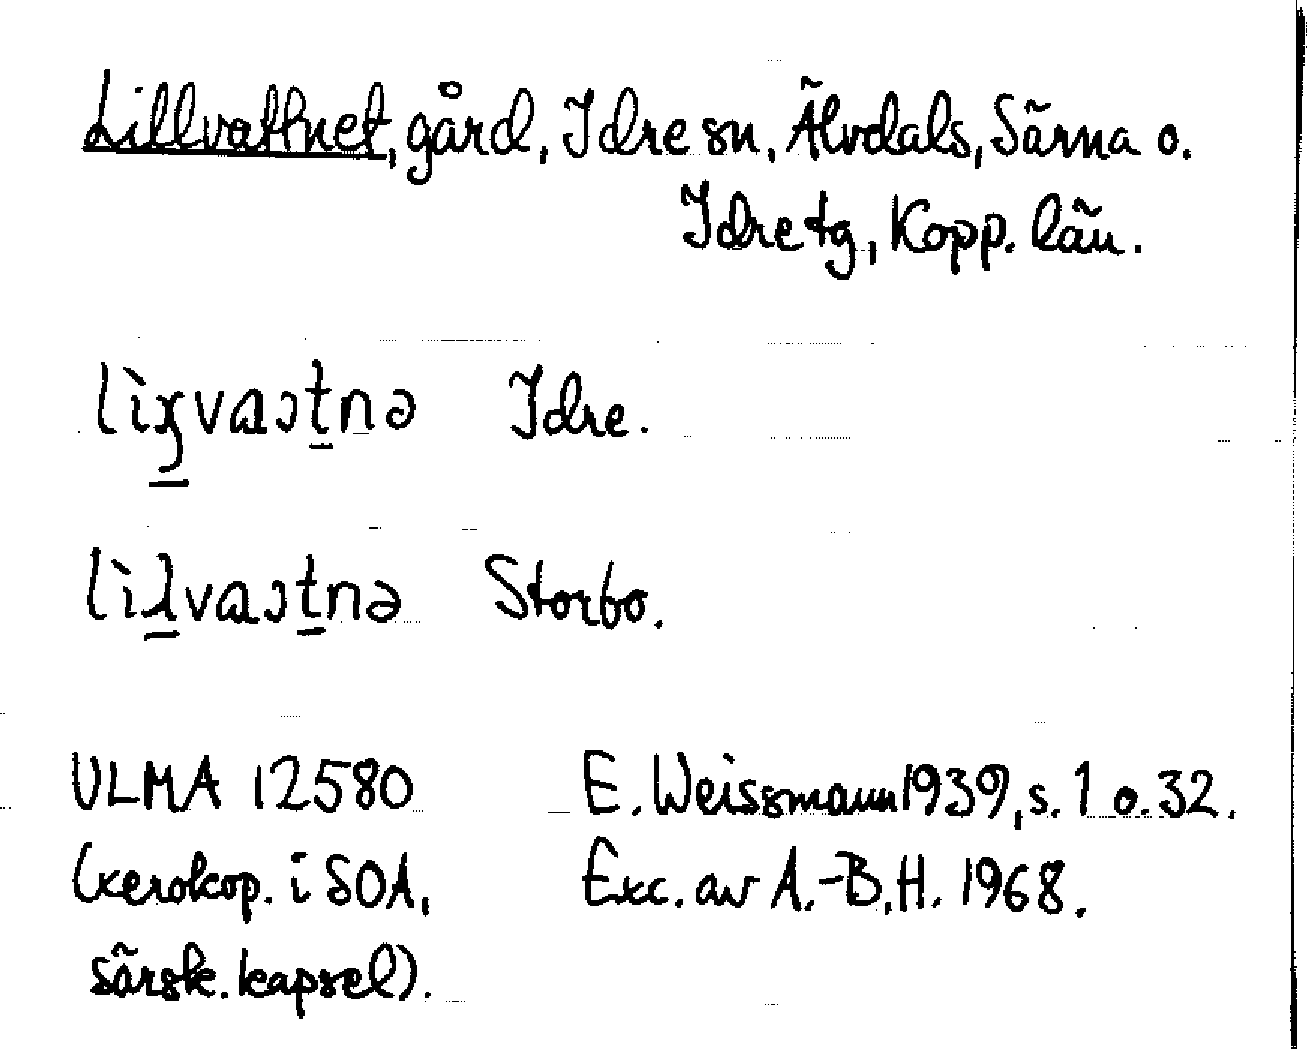 Lillvattnet, gård, Idre sn, Älvdals, Särna o.
Idre tg, Kopp. län.
Idre.
Storbo.
ULMA 12580 E. Weissmann 1939, s. 1 o. 32.
(xerokop. i SOA, Exc. av A.-B.H. 1968.
särsk. kapsel).